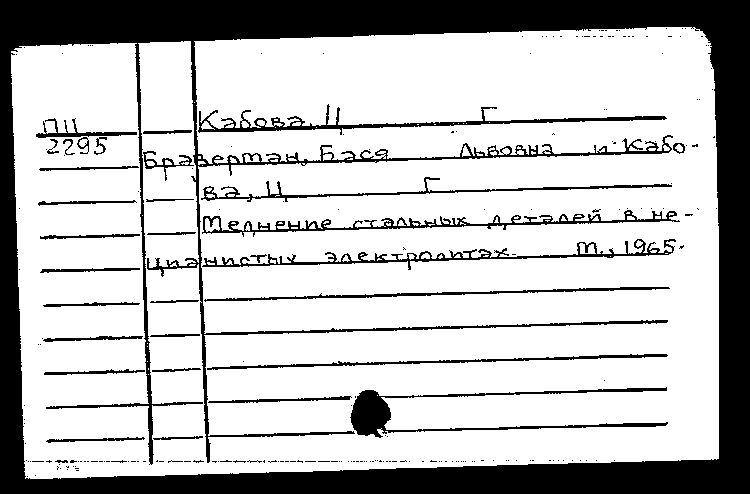 П11 Кабова, Ц Г
2295
Браверман, Бася Львовна и Кабо-
ва, Ц Г
Меднение стальных деталей в не-
цианистых электролитах. М., 1965.